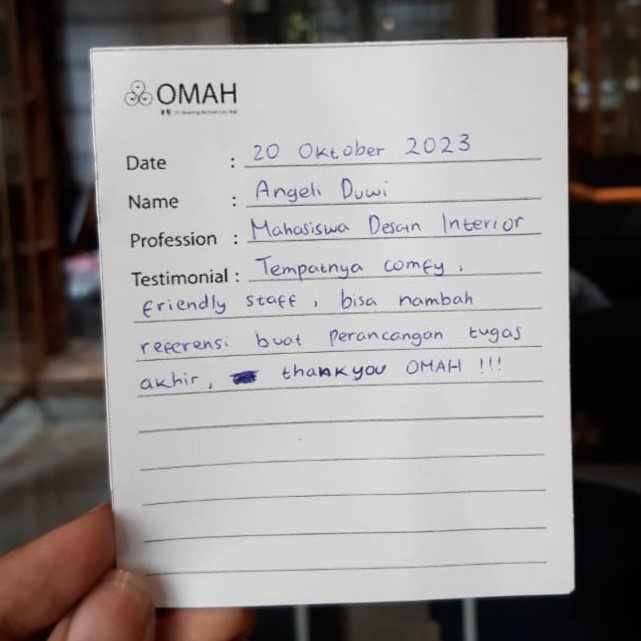 OMAH
Date : 20 Oktober 2023
Name : Angeli Duwi
Profession : Mahasiswa Desain Interior
Testimonial : Tempatnya comfy,
friendly staff, bisa nambah
referensi buat Perancangan tugas
akhir, thankyou OMAH !!!